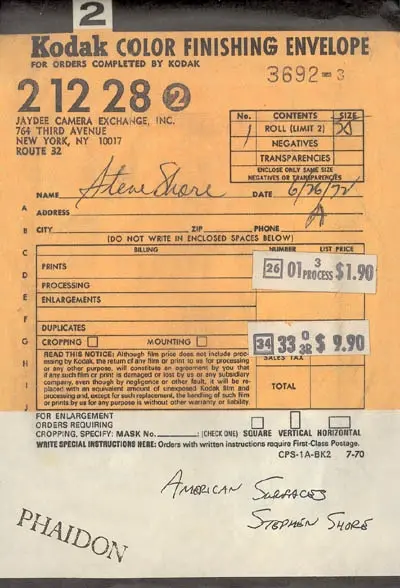 2
Kodak COLOR FINISHING ENVELOPE
FOR ORDERS COMPLETED BY KODAK
3692 3
2 12 28 2
JAYDEE CAMERA EXCHANGE, INC.
764 THIRD AVENUE
NEW YORK, NY 10017
ROUTE 32
No. CONTENTS SIZE
1 ROLL (LIMIT 2)
NEGATIVES
TRANSPARENCIES
ENCLOSE ONLY SAME SIZE
NEGATIVES OR TRANSPARENCIES
NAME Steve Shore DATE 6/26/72
A ADDRESS A
B CITY ZIP PHONE
(DO NOT WRITE IN ENCLOSED SPACES BELOW)
C BILLING NUMBER LIST PRICE
D PRINTS 26 01 3 PROCESS $1.90
PROCESSING
E ENLARGEMENTS
F
G DUPLICATES 34 33 0 3R $ 9.90
H CROPPING MOUNTING SALES TAX
READ THIS NOTICE: Although film price does not include proc-
essing by Kodak, the return of any film or print to us for processing
or any other purpose, will constitute an agreement by you that
if any such film or print is damaged or lost by us or any subsidiary
company, even though by negligence or other fault, it will be re-
placed with an equivalent amount of unexposed Kodak film and
processing and, except for such replacement, the handling of such film
or prints by us for any purpose is without other warranty or liability.
I
J
TOTAL
FOR ENLARGEMENT
ORDERS REQUIRING
CROPPING, SPECIFY: MASK No. (CHECK ONE) SQUARE VERTICAL HORIZONTAL
WRITE SPECIAL INSTRUCTIONS HERE: Orders with written instructions require First-Class Postage.
CPS-1A-BK2 7-70
AMERICAN SURFACES
STEPHEN SHORE
PHAIDON